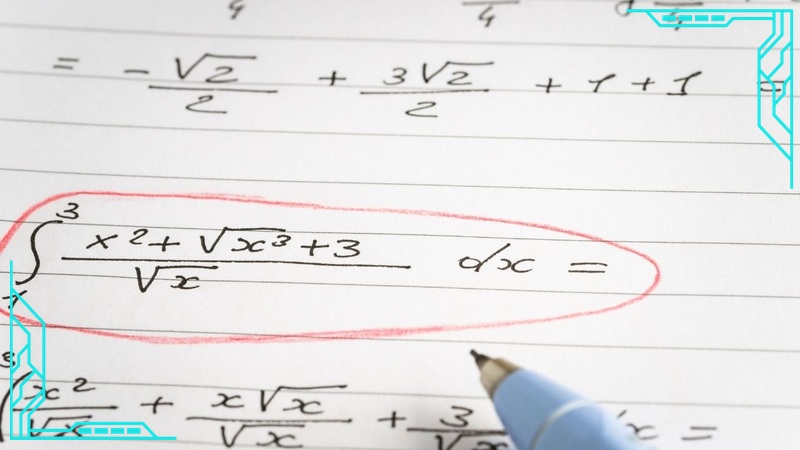 4 4 4
= - √2/2 + 3√2/2 + 1 + 1 =
∫₁³ (x² + √x³ + 3)/√x dx =
∫ x²/√x + x√x/√x + 3/√x dx =